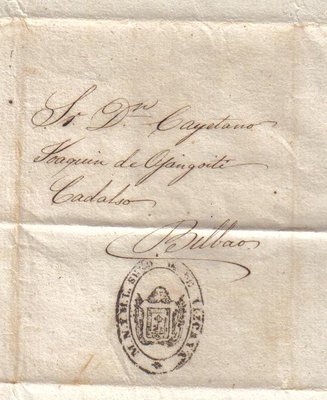 Sr. Dn. Cayetano
Joaquin de Ojangoiti
Cadalso
Bilbao
M. N. Y M. L. SEÑO DE VIZCAYA